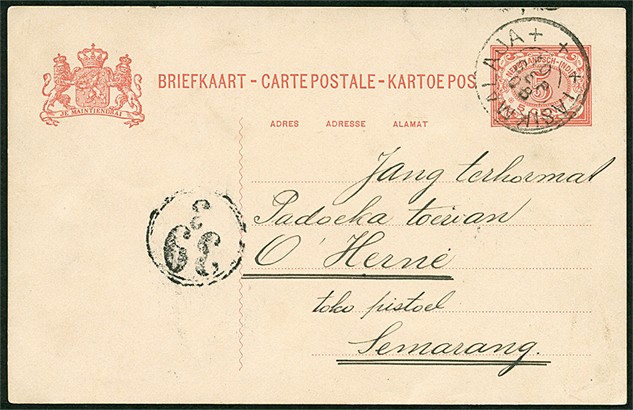 BRIEFKAART - CARTE POSTALE - KARTOE POS
NEDERLANDSCH-INDIË
5
TASIKMALAJA
JE MAINTIENDRAI
ADRES ADRESSE ALAMAT
Jang terhormat
Padoeka toewan
O' Herné
toko pistoel
Semarang.